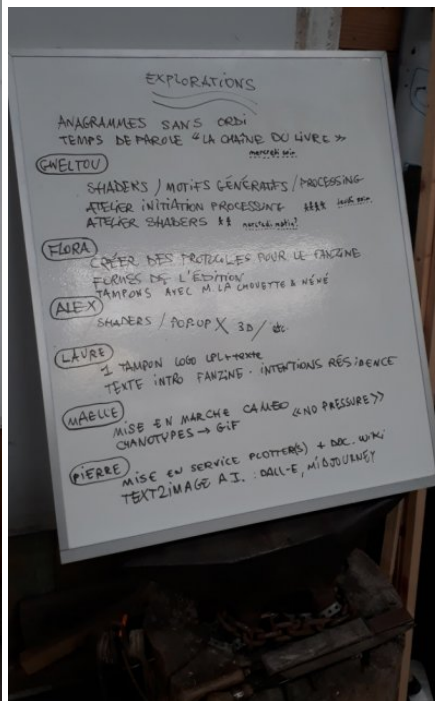 EXPLORATIONS
ANAGRAMMES SANS ORDI
TEMPS DE PAROLE "LA CHAÎNE DU LIVRE"
mercredi soir
GWELTOU
SHADERS / MOTIFS GÉNÉRATIFS / PROCESSING
ATELIER INITIATION PROCESSING **** lundi soir
ATELIER SHADERS ** mercredi matin?
FLORA
CRÉER DES PROTOCOLES POUR LE FANZINE
FORMES DE L'ÉDITION
TAMPONS AVEC M. LA CHOUETTE & NÉNÉ
ALEX
SHADERS / POP.UP X 3D /
LAURE
1 TAMPON LOGO LPL+texte
TEXTE INTRO FANZINE - INTENTIONS RÉSIDENCE
MAELLE
MISE EN MARCHE CAMEO «NO PRESSURE»
CYANOTYPES → GIF
PIERRE
MISE EN SERVICE PLOTTER(S) + DOC. WIKI
TEXT2IMAGE A.I. : DALL-E, MIDJOURNEY